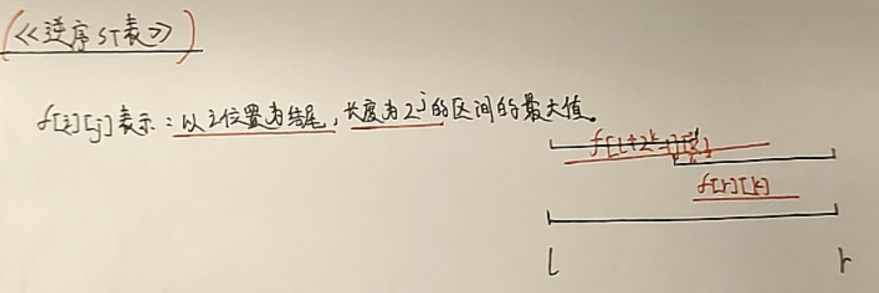 《逆序ST表》
f[i][j]表示：以i位置为结尾，长度为2^j的区间的最大值。
f[l+2^k-1][k]
f[r][k]
l r